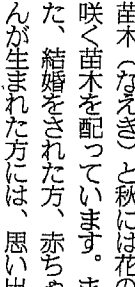 苗木（なえぎ）と秋には花の
咲く苗木を配っています。ま
た、結婚をされた方、赤ちゃ
んが生まれた方には、思い出